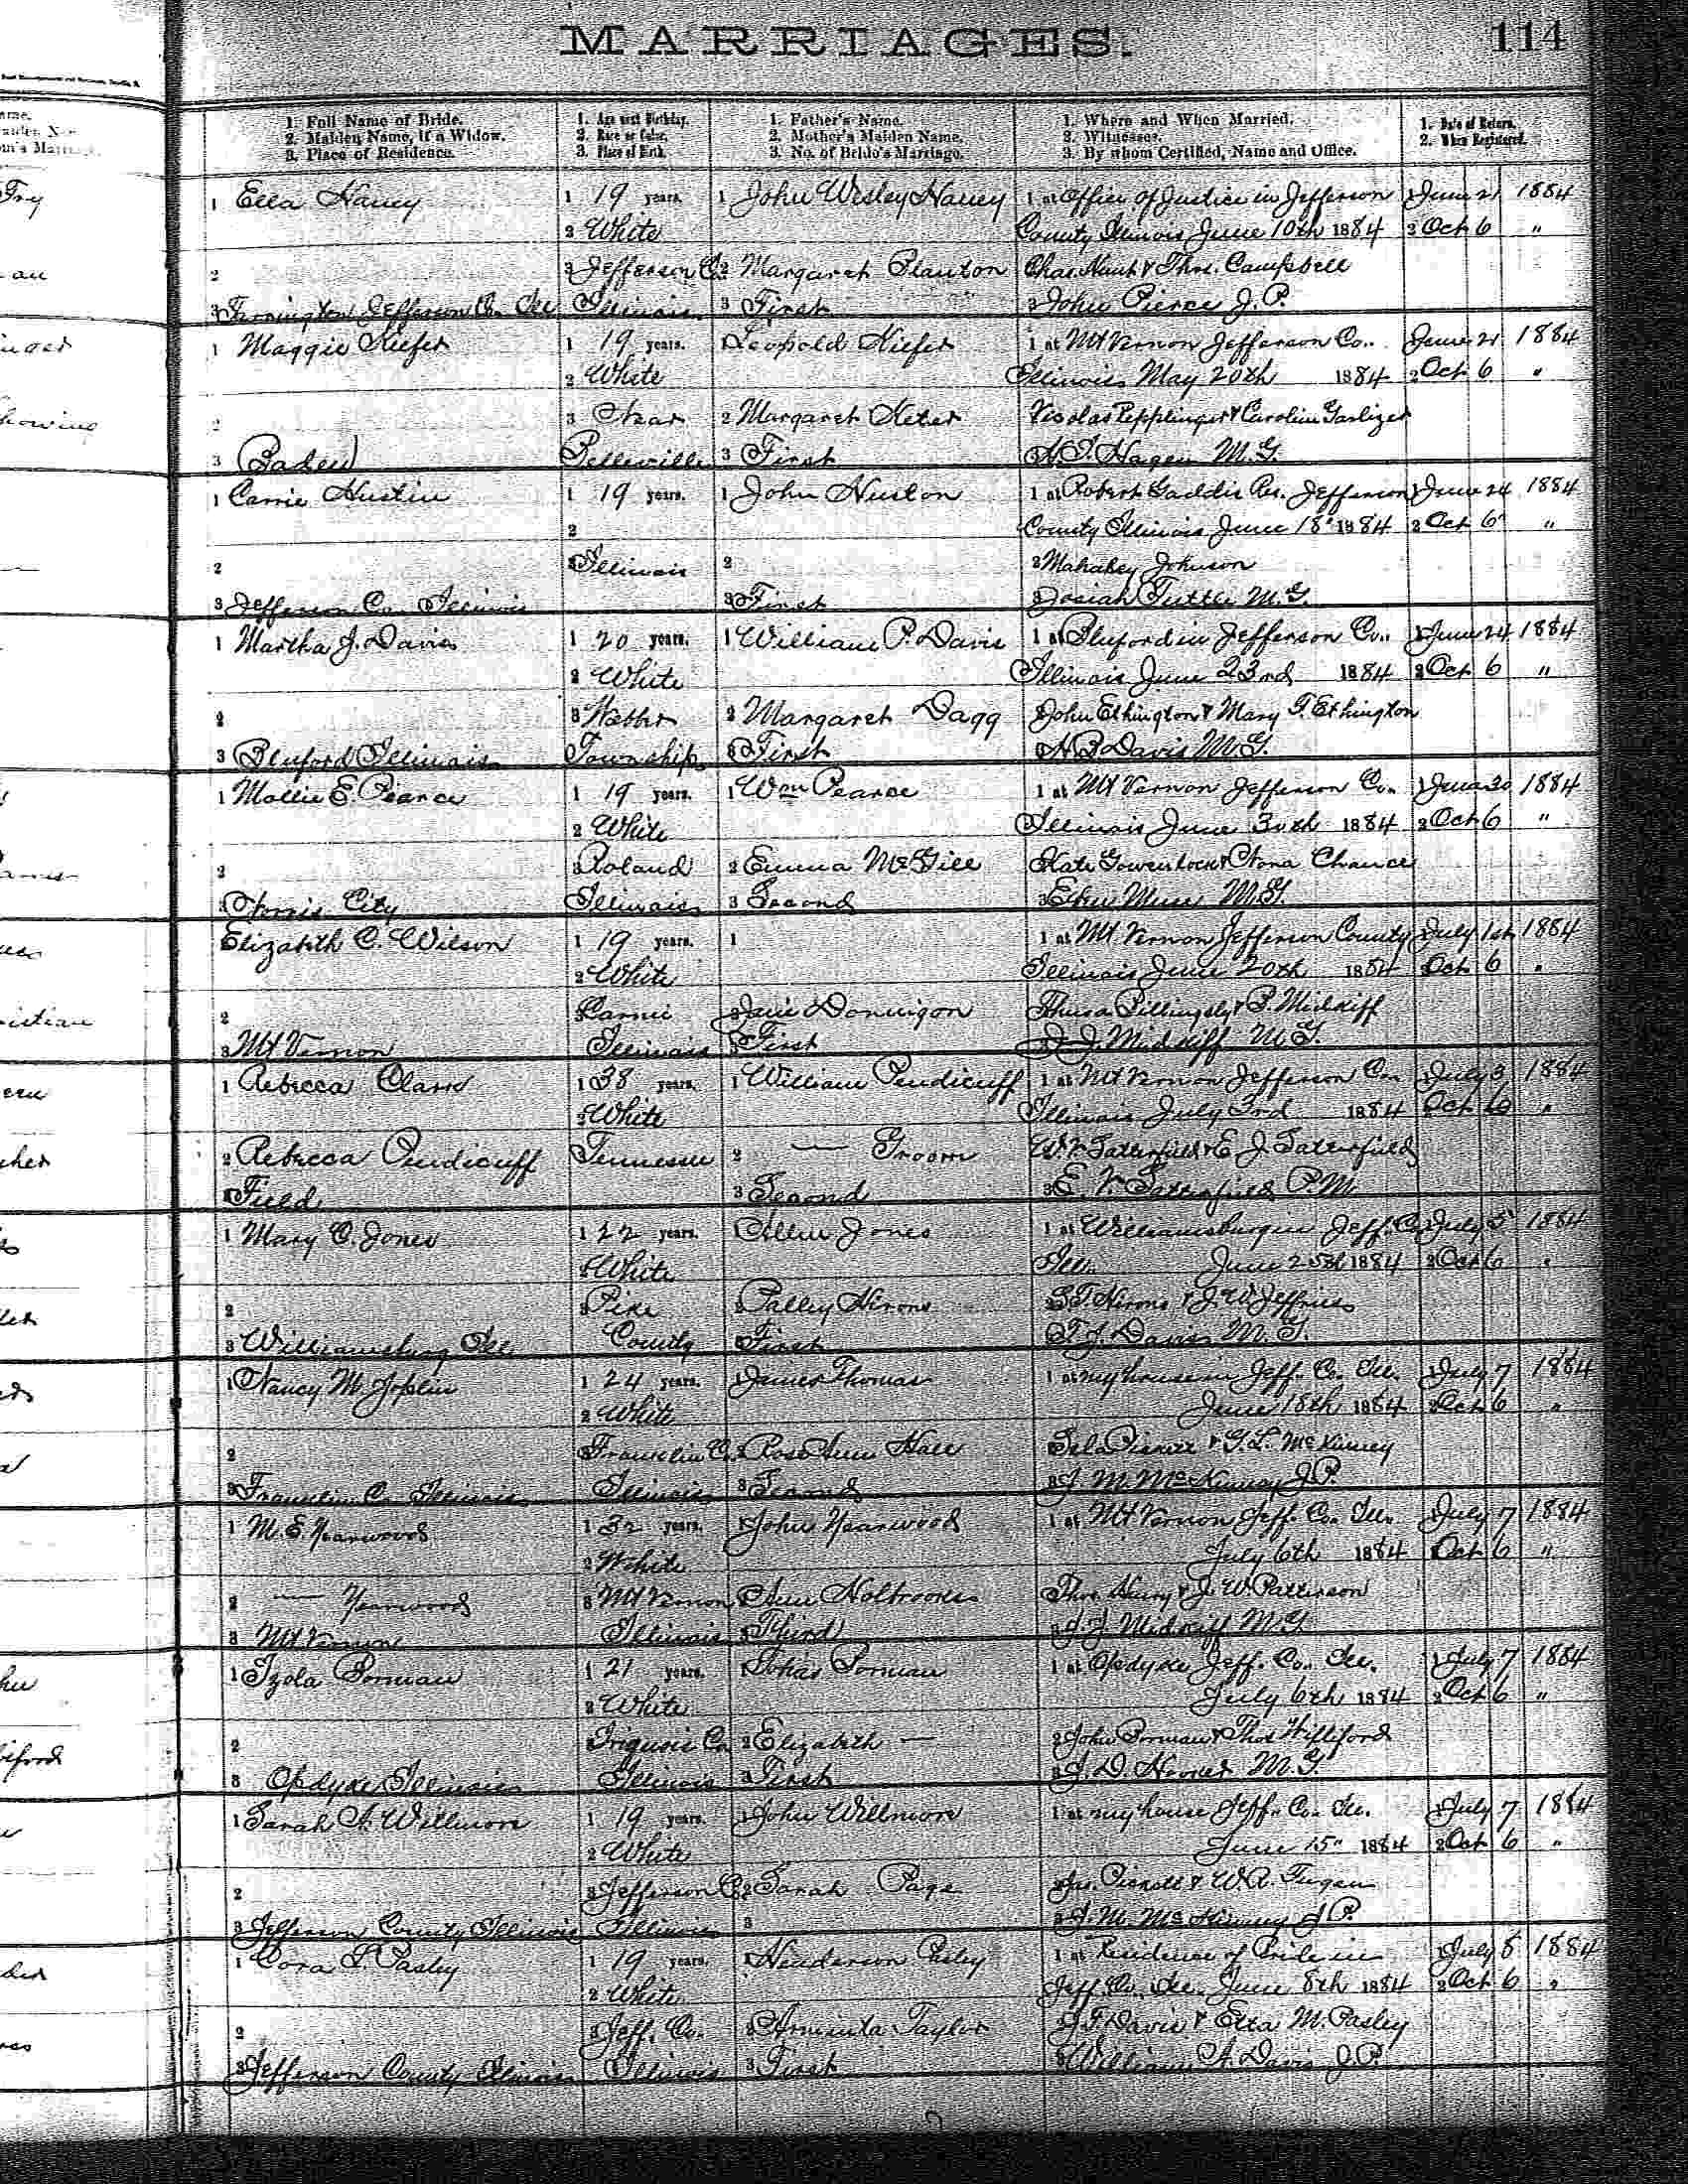 MARRIAGES.
114
1. Full Name of Bride.
2. Maiden Name, if a Widow.
3. Place of Residence.
1. Age next Birthday.
2. Race or Color.
3. Place of Birth.
1. Father's Name.
2. Mother's Maiden Name.
3. No. of Bride's Marriage.
1. Where and When Married.
2. Witnesses.
3. By whom Certified, Name and Office.
1. Date of Return.
2. When Registered.
1 Ella Haney 1 19 years. 1 John Wesley Haney 1 at Office of Justice in Jefferson 1 June 21 1884
2 White County Illinois June 10th 1884 2 Oct 6 "
2 3 Jefferson Co. 2 Margaret Chas. & Thos. Campbell
3 Farrington Jefferson Co. Ill Illinois 3 First 3 John Pierce J.P.
1 Maggie Kiefer 1 19 years. Leopold Kiefer 1 at Mt Vernon Jefferson Co. June 21 1884
2 White Illinois May 20th 1884 2 Oct 6 "
2 3 Near 2 Margaret Keter & Caroline
3 Baden 3 First Hagen M.G.
1 Carrie Hustin 1 19 years. 1 John Huston 1 at Robert Gaddis Res. Jefferson 1 June 24 1884
2 County Illinois June 18" 1884 2 Oct 6 "
2 3 Illinois 2 2 Mahaley Johnson
3 Jefferson Co. Illinois 3 First 3 Josiah Tuttle M.G.
1 Martha J. Davis 1 20 years. 1 William P. Davis 1 at Bluford in Jefferson Co. 1 June 24 1884
2 White Illinois June 23rd 1884 2 Oct 6 "
2 3 Webber 2 Margaret Dagg John Ethington & Mary Ethington
3 Bluford Illinois Township 3 First Davis M.G.
1 Mollie E. Pearce 1 19 years. 1 Wm Pearce 1 at Mt Vernon Jefferson Co. 1 June 30 1884
2 White Illinois June 30th 1884 2 Oct 6 "
2 3 Roland 2 Emma McGill Kate & Nona Chance
3 Norris City Illinois 3 Second 3 M.G.
Elizabeth C. Wilson 1 19 years. 1 1 at Mt Vernon Jefferson County July 1st 1884
2 White Illinois June 20th 1884 Oct 6 "
2 & Midkiff
3 Mt Vernon Illinois 3 First J. J. Midkiff M.G.
1 Rebecca 1 38 years. 1 William Pendicuff 1 at Mt Vernon Jefferson Co. July 3 1884
2 White Illinois July 3rd 1884 Oct 6 "
2 Rebecca Pendicuff Tennessee 2 — Groom Satterfield & E. J. Satterfield
3 Field 3 Second 3 Satterfield P.M.
1 Mary C. Jones 1 22 years. Allen Jones 1 at Williamsburg in Jeff. Co. July 5 1884
2 White Ill. June 1884 2 Oct 6 "
2 3 Pike Hirons & J. W. Jeffries
3 Williamsburg Ill County 3 First Davis M.G.
1 Nancy M. Joplin 1 24 years. 1 James Thomas 1 at my house in Jeff. Co. Ill. 1 July 7 1884
2 White June 18th 1884 2 Oct 6 "
2 Franklin Co. 2 Rose Ann Hall & G. L. McKinney
3 Franklin Co. Illinois Illinois 3 Second 3 J. M. McKinney J.P.
1 M. E. Yearwood 1 32 years. 1 John Yearwood 1 at Mt Vernon Jeff. Co. Ill. July 7 1884
2 White July 6th 1884 Oct 6 "
2 — Yearwood 3 Mt Vernon Ann Holbrooks Thos. Henry & J. W. Patterson
3 Mt Vernon Illinois 3 Third 3 J. J. Midkiff M.G.
1 Izola Porman 1 21 years. Porman 1 at Opdyke Jeff. Co. Ill. 1 July 7 1884
2 White July 6th 1884 2 Oct 6 "
2 3 Iriquois Co. 2 Elizabeth — 2 John Porman & Thos
3 Opdyke Illinois Illinois 3 First 3 J. D. Hooker M.G.
1 Sarah A. Willmore 1 19 years. 1 John Willmore 1 at my house Jeff. Co. Ill. 1 July 7 1884
2 White June 15" 1884 2 Oct 6 "
2 3 Jefferson Co. 2 Sarah Page & W. R.
3 Jefferson County Illinois Illinois 3 3 J. M. McKinney J.P.
1 Cora Pasley 1 19 years. 1 Henderson Pasley 1 at Residence of Bride in 1 July 8 1884
2 White Jeff. Co. Ill. June 8th 1884 2 Oct 6 "
2 3 Jeff. Co. 2 Arminta Taylor Davis & Etta M. Pasley
3 Jefferson County Illinois Illinois 3 First 3 William A. Davis J.P.